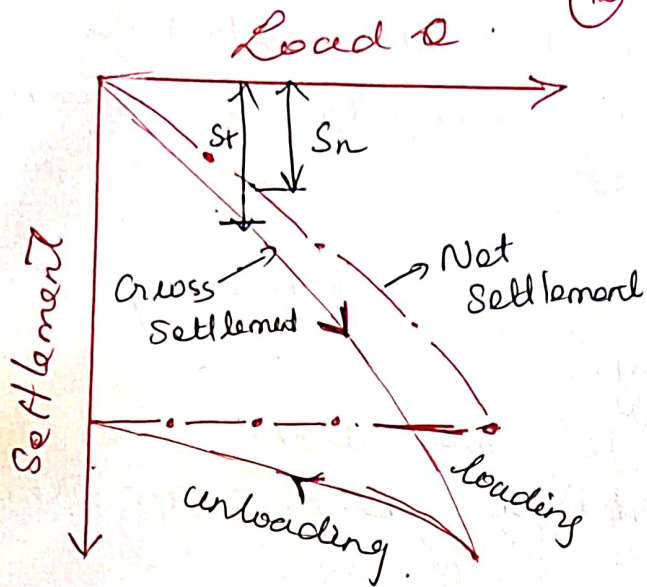 Load Q.
St
Sn
Gross
Settlement
Net
Settlement
Settlement
loading
unloading.